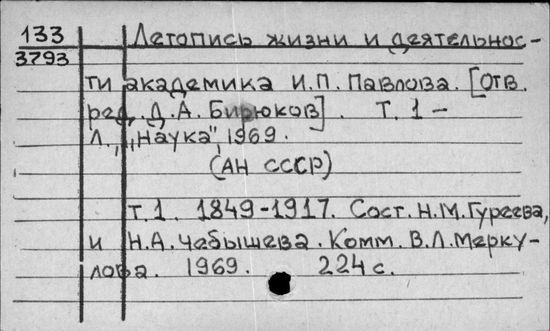 133 Летопись жизни и деятельнос-
3793
ти академика И.П. Павлова. [Отв.
ред. Д.А. Бирюков]. Т. 1 –
Л., "Наука", 1969.
(АН СССР)
т. 1. 1849-1917. Сост. Н.М. Гуреева,
и Н.А. Чебышева. Комм. В.Л. Мерку-
лова. 1969. 224 с.